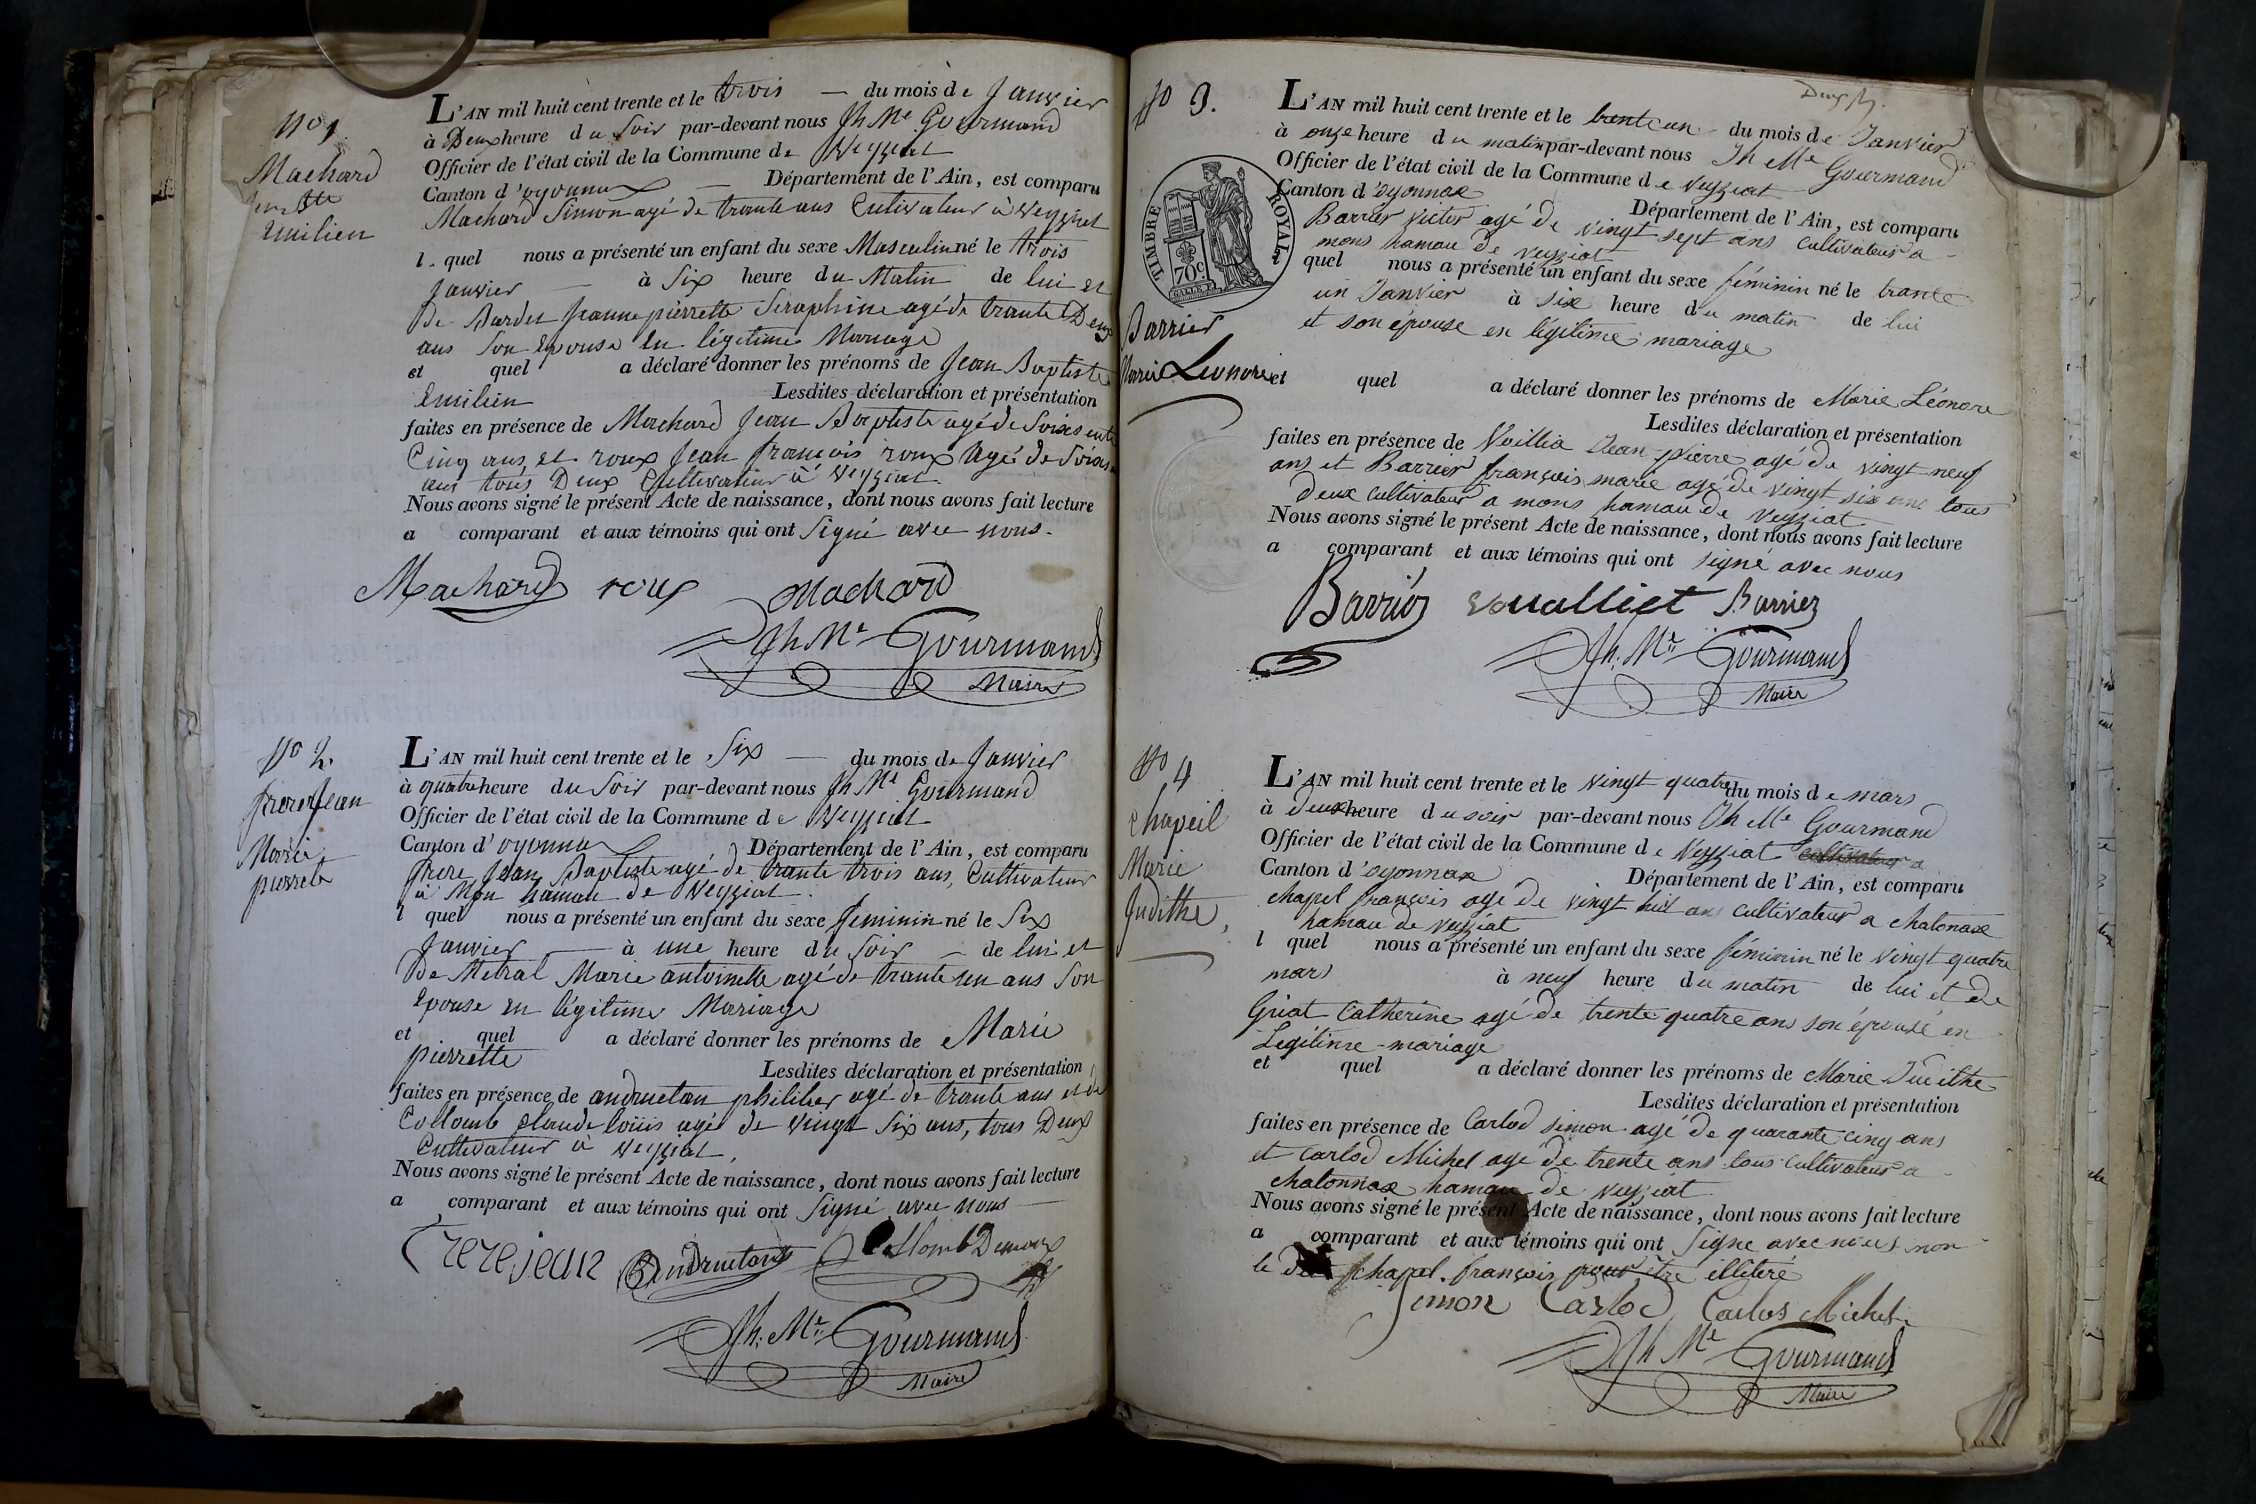 No 1
Machard
jn Bte
Emilien
L'AN mil huit cent trente et le trois — du mois de Janvier
à Deux heure du Soir par-devant nous Jh Me Gourmand
Officier de l'état civil de la Commune de Veyziat
Canton d'oyonnax — Département de l'Ain, est comparu
Machard Simon agé de trante ans Cultivateur à Veyziat
l quel nous a présenté un enfant du sexe Masculin né le trois
Janvier — à Six heure du Matin de lui et
de Bardet Jeanne pierrette Seraphine agé de trante Deux
ans Son Epouse En légitime Mariage
et quel a déclaré donner les prénoms de Jean Baptiste
Emilien Lesdites déclaration et présentation
faites en présence de Machard Jean Baptiste agé de Soixante
Cinq ans, et roux Jean françois roux Agé de
ans tous Deux Cultivateur à Veyziat
Nous avons signé le présent Acte de naissance, dont nous avons fait lecture
a comparant et aux témoins qui ont Signé avec nous.
Machard roux Machard
Jh Me Gourmand
Maire
No 2.
frere Jean
Marie
pierrete
L'AN mil huit cent trente et le Six — du mois de Janvier
à quatre heure du Soir par-devant nous Jh Me Gourmand
Officier de l'état civil de la Commune de Veyziat
Canton d'oyonnax Département de l'Ain, est comparu
frere Jean Baptiste agé de trante trois ans, Cultivateur
à Mon hamau de Veyziat.
l quel nous a présenté un enfant du sexe feminin né le Six
Janvier — à une heure du Soir — de lui et
de Metral Marie antoinette agé de trante un ans Son
Epouse en légitime Mariage
et quel a déclaré donner les prénoms de Marie
pierrette Lesdites déclaration et présentation
faites en présence de andruetan philiber agé de trante ans et de
Collomb Claude loüis agé de Vingt Six ans, tous Deux
Cultivateur à Veyziat,
Nous avons signé le présent Acte de naissance, dont nous avons fait lecture
a comparant et aux témoins qui ont Signé avec nous —
frerejean Andruetan Collomb
Jh. Me Gourmand
Maire
No 3.
TIMBRE ROYAL
70c
Barrier
Marie Leonore
L'AN mil huit cent trente et le trente un du mois de Janvier
à onze heure du matin par-devant nous Jh Me Gourmand
Officier de l'état civil de la Commune de Veyziat
Canton d'oyonnax Département de l'Ain, est comparu
Barrier Victor agé de vingt sept ans cultivateur a
mons hamau de Veyziat
quel nous a présenté un enfant du sexe féminin né le trante
un Janvier à six heure du matin de lui
et son épouse en légitime mariage
et quel a déclaré donner les prénoms de Marie Léonore
Lesdites déclaration et présentation
faites en présence de Vuillia Jean-pierre agé de vingt neuf
ans et Barrier françois marie agé de vingt six ans tous
deux cultivateur a mons hamau de Veyziat
Nous avons signé le présent Acte de naissance, dont nous avons fait lecture
a comparant et aux témoins qui ont signé avec nous
Barrier Vualliet Barrier
Jh. Me Gourmand
Maire
No 4
chapeil
Marie
Judithe,
L'AN mil huit cent trente et le vingt quatre du mois de mars
à deux heure du soir par-devant nous Jh Me Gourmand
Officier de l'état civil de la Commune de Veyziat cultivateur a
Canton d'oyonnax Département de l'Ain, est comparu
chapel françois agé de vingt huit ans cultivateur a chatonax
hamau de Veyziat
l quel nous a présenté un enfant du sexe féminin né le vingt quatre
mars à neuf heure du matin de lui et de
Griat Catherine agé de trente quatre ans son épouse en
Légitime mariage
et quel a déclaré donner les prénoms de Marie Judithe
Lesdites déclaration et présentation
faites en présence de Carlod simon agé de quarante cinq ans
et Carlod Michel age de trente ans tous cultivateur a
chatonnax hamau de Veyziat
Nous avons signé le présent Acte de naissance, dont nous avons fait lecture
a comparant et aux témoins qui ont signe avec nous non
le dit chapel. françois pour être illiteré
Simon Carlod Carlod Michel
Jh Me Gourmand
Maire